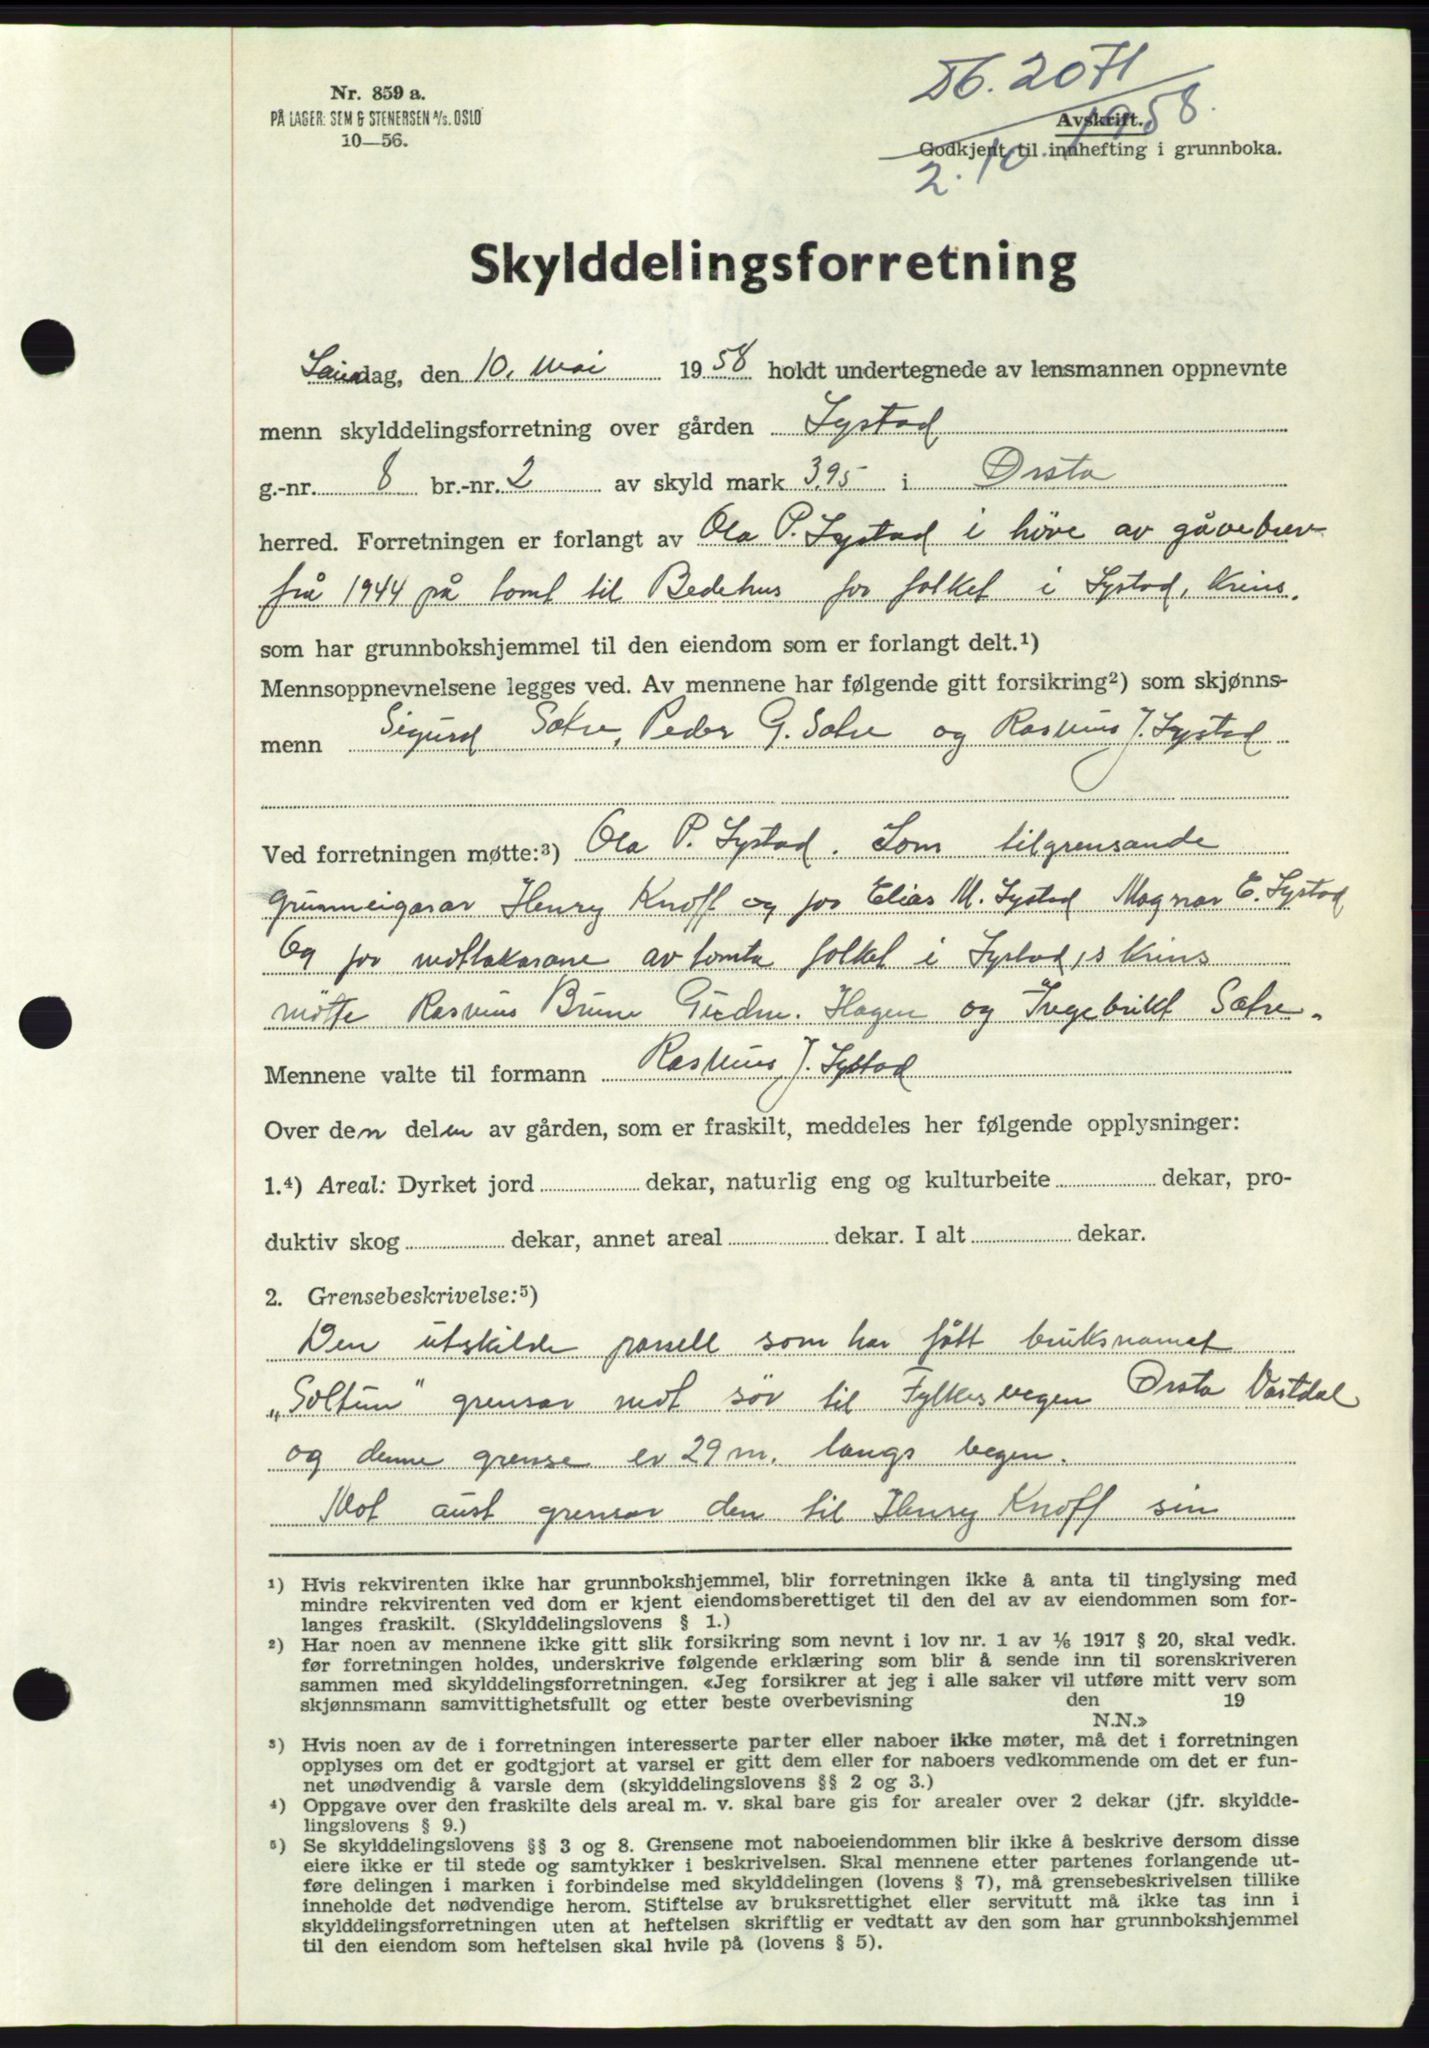 Nr. 859 a.
PÅ LAGER: SEM & STENERSEN A/S. OSLO
10—56.
Db. 2071
2. 10. 1958.
Avskrift.
Godkjent til innhefting i grunnboka.
Skylddelingsforretning
Laurdag, den 10. mai 1958 holdt undertegnede av lensmannen oppnevnte
menn skylddelingsforretning over gården Systad
g.-nr. 8 br.-nr. 2 av skyld mark 3,95 i Ørsta
herred. Forretningen er forlangt av Ola P. Systad i høve av gåvebrev
frå 1944 på tomt til Bedehus for folket i Systad, krins.
som har grunnbokshjemmel til den eiendom som er forlangt delt.¹)
Mennsoppnevnelsene legges ved. Av mennene har følgende gitt forsikring²) som skjønns-
menn Sigurd Sætre, Peder G. Sætre og Rasmus J. Systad
Ved forretningen møtte:³) Ola P. Systad. Som tilgrensande
grunneigarar Henry Knoff og for Elias M. Systad Magnar E. Systad
Og for mottakarane av tomta folket i Systad,s krins
møtte Rasmus Brune Gudm. Hagen og Ingebrikt Sætre.
Mennene valte til formann Rasmus J. Systad
Over den delen av gården, som er fraskilt, meddeles her følgende opplysninger:
1.⁴) Areal: Dyrket jord dekar, naturlig eng og kulturbeite dekar, pro-
duktiv skog dekar, annet areal dekar. I alt dekar.
2. Grensebeskrivelse:⁵)
Den utskilde parsell som har fått bruksnamet
„Soltun" grensar mot sør til Fylkesvegen Ørsta Vartdal
og denne grense er 29 m. langs vegen.
Mot aust grensar den til Henry Knoff sin
¹) Hvis rekvirenten ikke har grunnbokshjemmel, blir forretningen ikke å anta til tinglysing med
mindre rekvirenten ved dom er kjent eiendomsberettiget til den del av av eiendommen som for-
langes fraskilt. (Skylddelingslovens § 1.)
²) Har noen av mennene ikke gitt slik forsikring som nevnt i lov nr. 1 av 1/6 1917 § 20, skal vedk.
før forretningen holdes, underskrive følgende erklæring som blir å sende inn til sorenskriveren
sammen med skylddelingsforretningen. «Jeg forsikrer at jeg i alle saker vil utføre mitt verv som
skjønnsmann samvittighetsfullt og etter beste overbevisning den 19
N.N.»
³) Hvis noen av de i forretningen interesserte parter eller naboer ikke møter, må det i forretningen
opplyses om det er godtgjort at varsel er gitt dem eller for naboers vedkommende om det er fun-
net unødvendig å varsle dem (skylddelingslovens §§ 2 og 3.)
⁴) Oppgave over den fraskilte dels areal m. v. skal bare gis for arealer over 2 dekar (jfr. skyldde-
lingslovens § 9.)
⁵) Se skylddelingslovens §§ 3 og 8. Grensene mot naboeiendommen blir ikke å beskrive dersom disse
eiere ikke er til stede og samtykker i beskrivelsen. Skal mennene etter partenes forlangende ut-
føre delingen i marken i forbindelse med skylddelingen (lovens § 7), må grensebeskrivelsen tillike
inneholde det nødvendige herom. Stiftelse av bruksrettighet eller servitutt må ikke tas inn i
skylddelingsforretningen uten at heftelsen skriftlig er vedtatt av den som har grunnbokshjemmel
til den eiendom som heftelsen skal hvile på (lovens § 5).